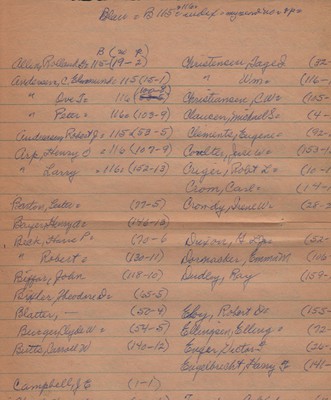 B (x p)
Allen, Rolland D. 115-(19-2)
Anderson, C. Edmund 115 (15-1)
" Ove J. 116
" Peter 116 (103-9)
Anderson, Robert J. 115 (53-5)
Arp, Henry 116 (107-9)
" Larry 116 (152-13)
Barton, Lester (77-5)
Bays, Henry (146-13)
Beck, Hans P. (70-6
" Robert (130-11)
Biggar, John (118-10)
Booher, Theodore D. (65-5)
Blatter, — (50-4)
Burger, Clyde W. (54-5)
Butts, Darrell W (140-12)
Campbell, J E (1-1)
Christensen, Gage J (32-
" Wm. (116-
Christiansen, C.W. (105-
Clausen, Michael E. (4-
Clements, Eugene (92-
Coulter, June W. (153-1
Creger, Robt L. (10-1
Crom, Carl (14-
Crowdy, Irene W. (28-2
Dixon, (53-
Dormacher, Emma M. (116
Dudley, Ray (159-
Eby, Robert D. (155-
Ellingsen, Elling (72-
Enger, Victor E. (26-
Engelbrecht, Harry E. (141-